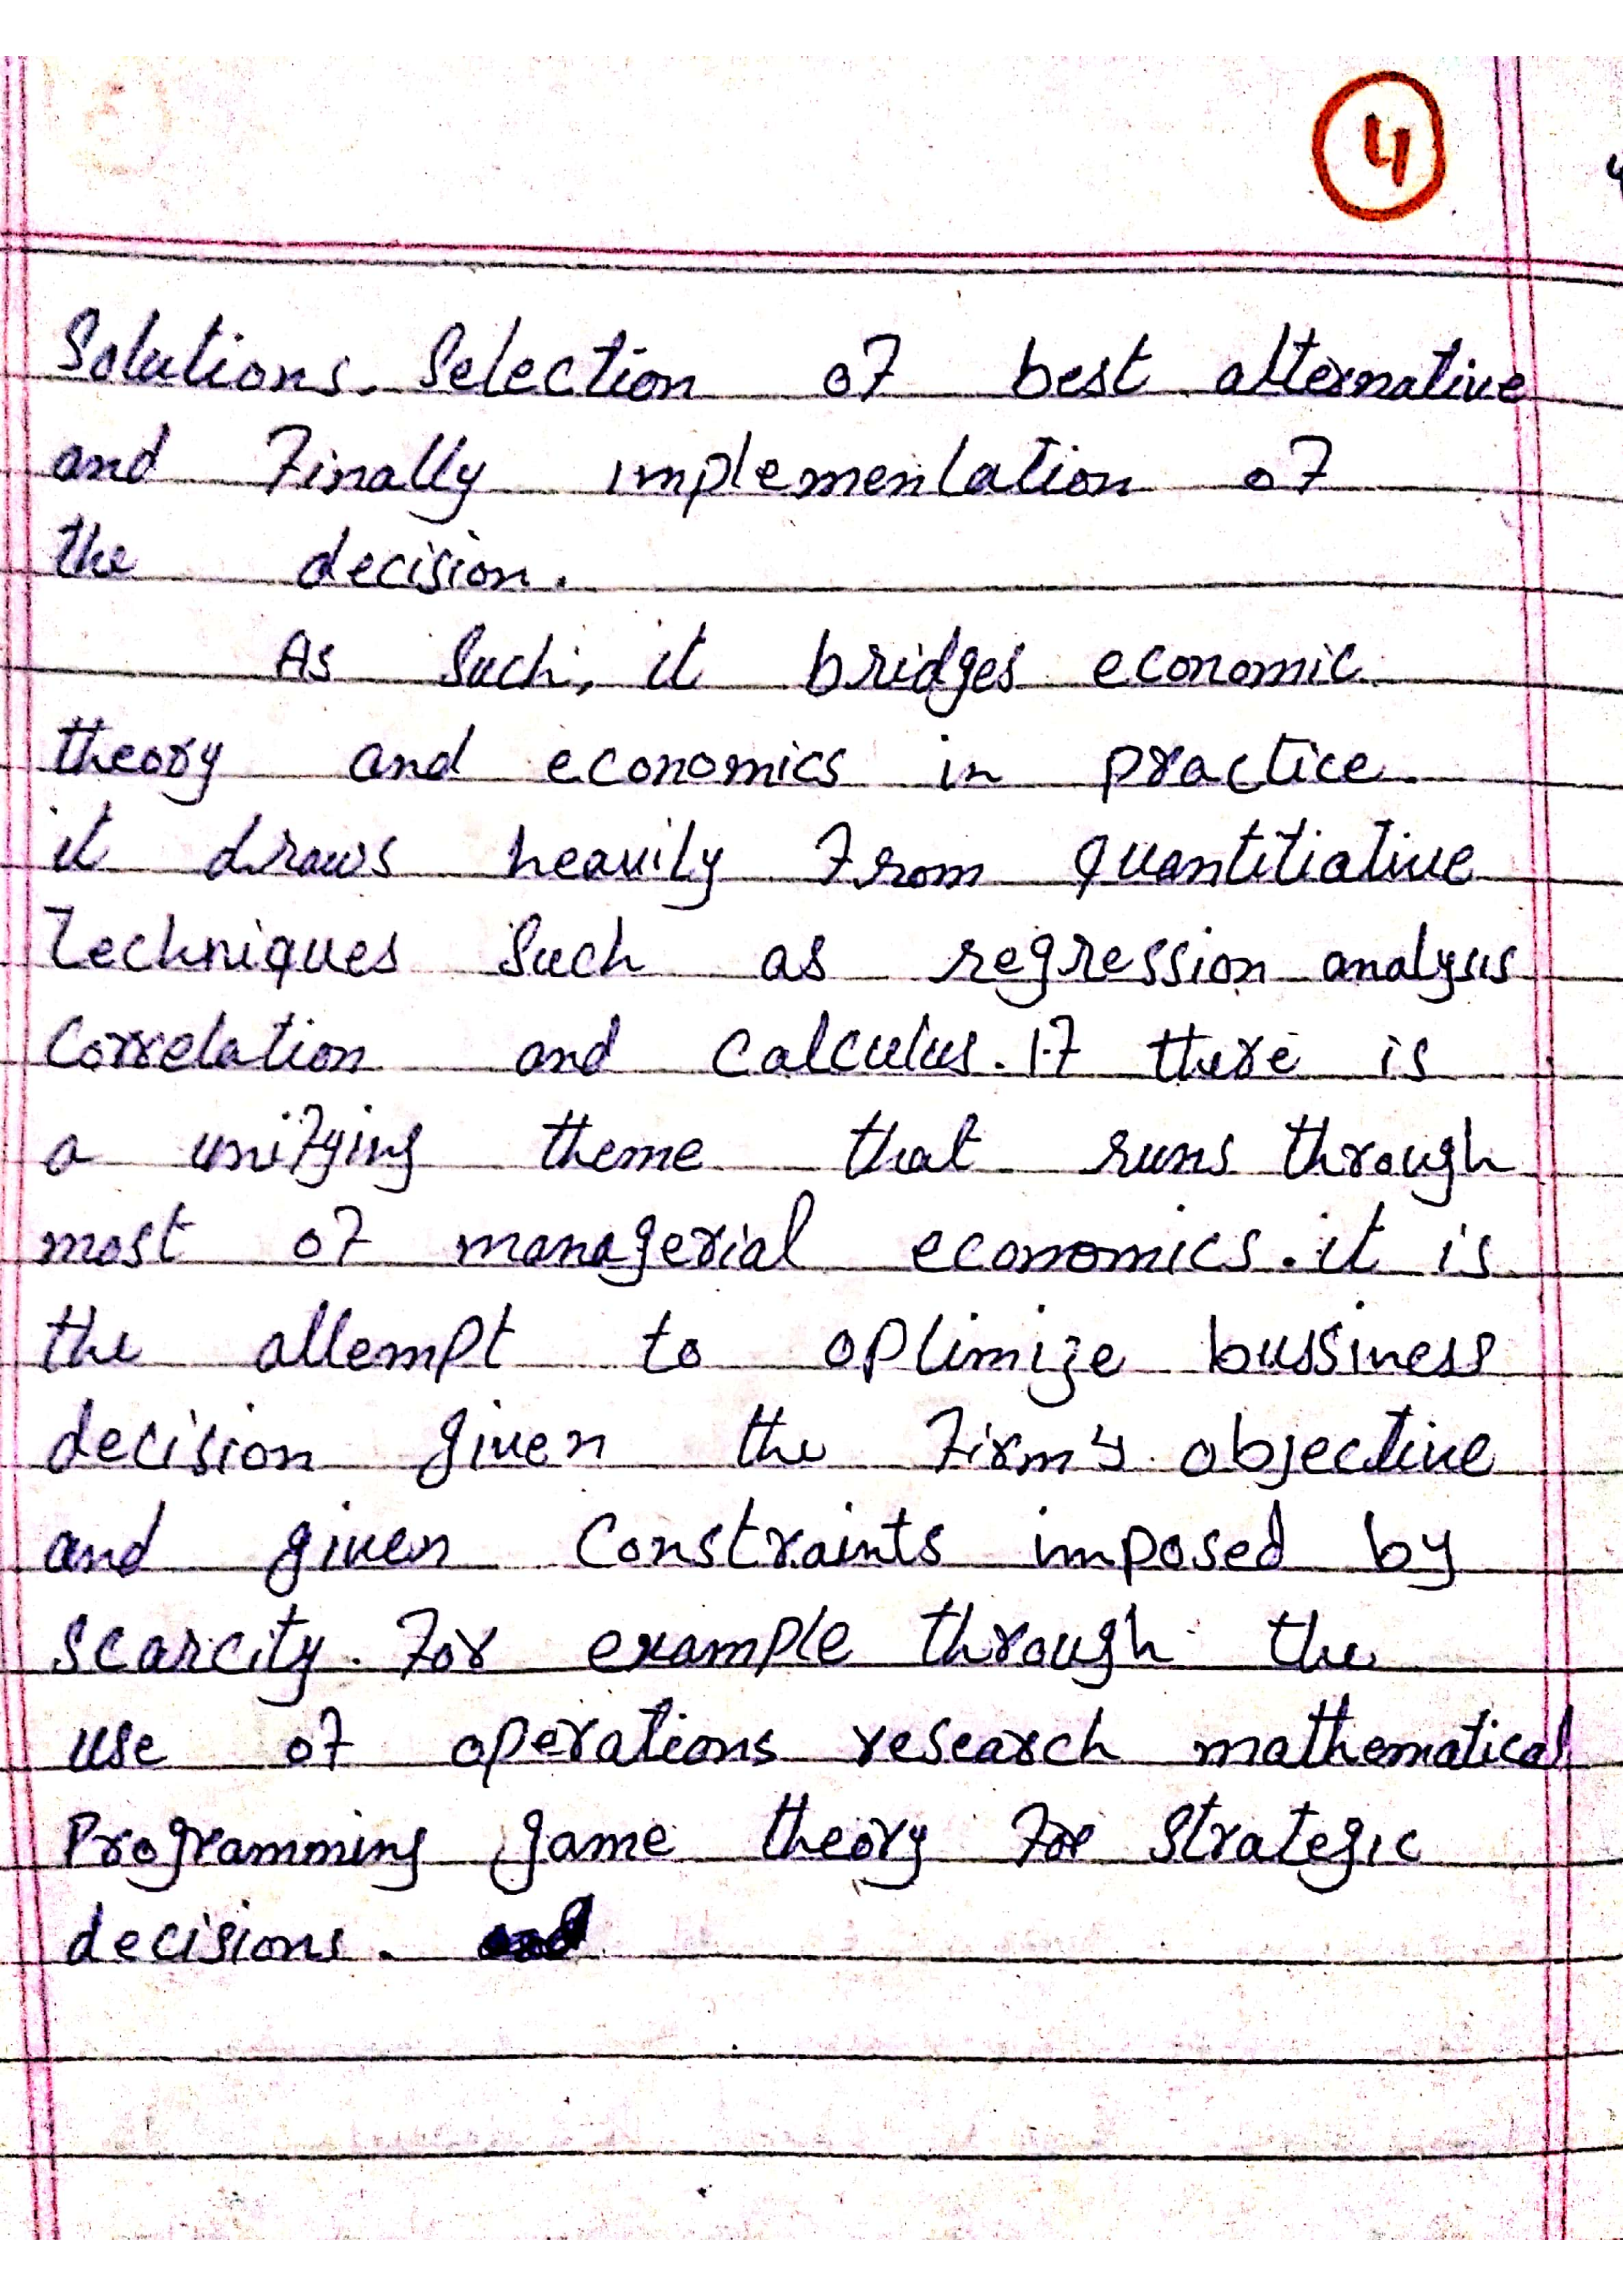 4
Solutions. Selection of best alternative
and Finally implementation of
the decision.
As such, it bridges economic
theory and economics in practice.
it draws heavily From quantitiative
Techniques such as regression analysis
Correlation and calculus. If there is
a unifying theme that runs through
most of managerial economics. it is
the attempt to optimize bussiness
decision given the Firm's objective
and given constraints imposed by
scarcity. For example through the
use of operations research mathematical
Programming, game theory For strategic
decisions.